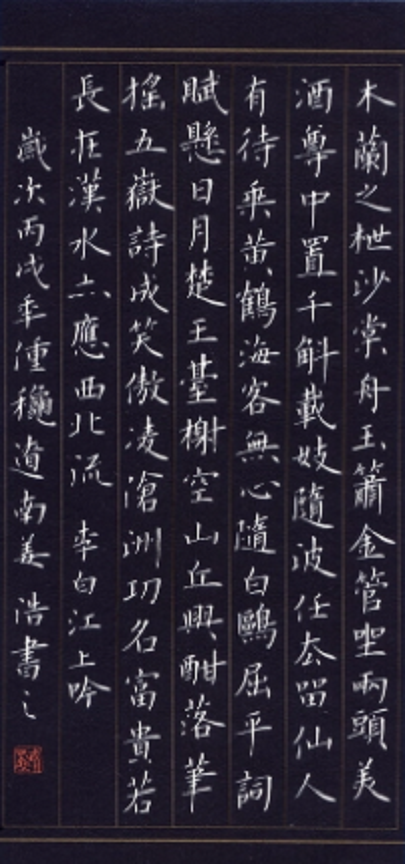 木蘭之枻沙棠舟玉簫金管坐兩頭美
酒尊中置千斛載妓隨波任去留仙人
有待乘黄鶴海客無心隨白鷗屈平詞
賦懸日月楚王臺榭空山丘興酣落筆
摇五嶽詩成笑傲凌滄洲功名富貴若
長在漢水亦應西北流 李白江上吟
歲次丙戌年穐道南姜浩書之